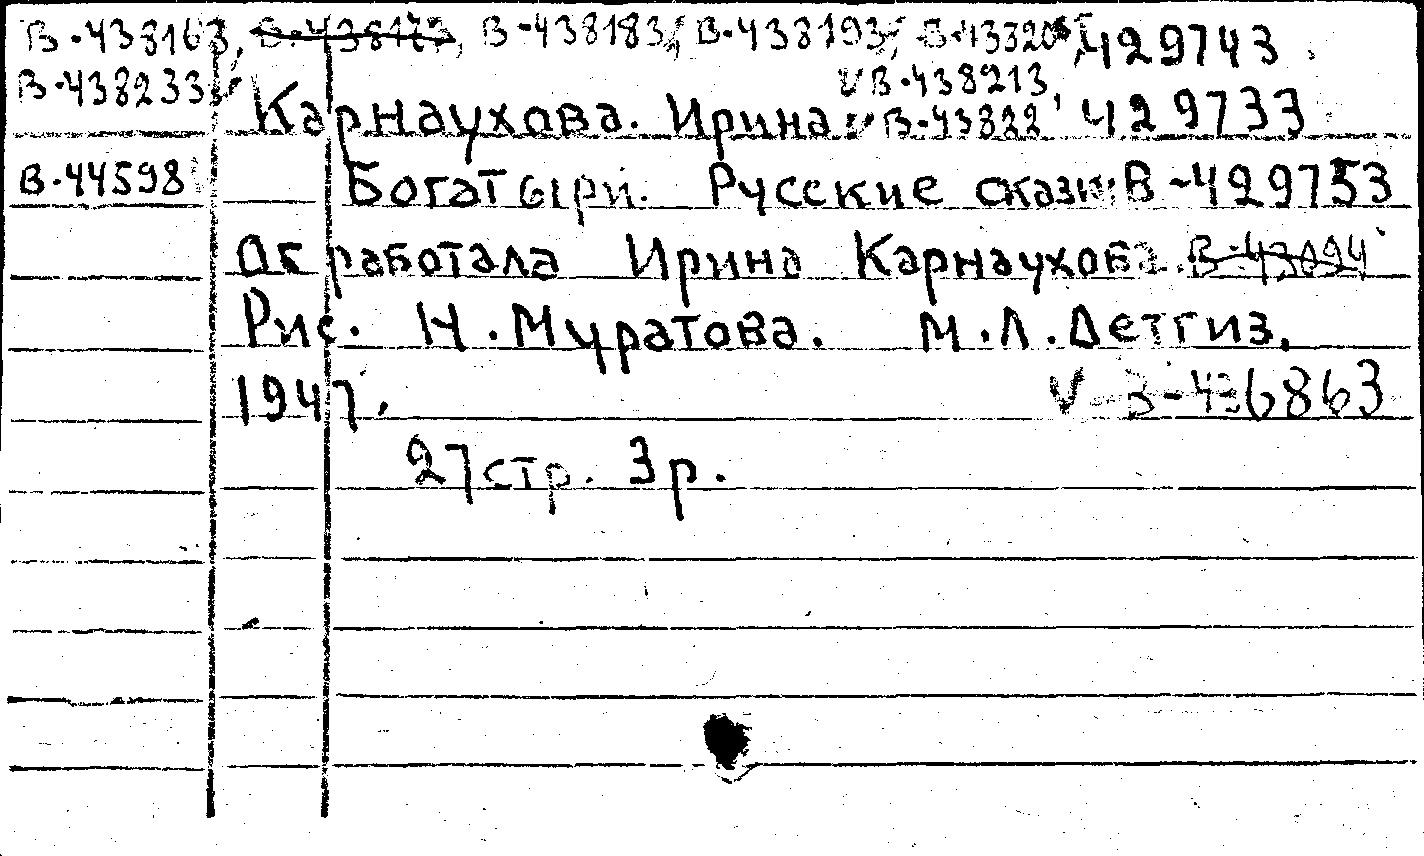 В-438163, В-438173, В-438183, В-438193, 429743
В-438233 V В-438213,
Карнаухова. Ирина V В-43822 429733
В-44598 Богатыри. Русские сказки В-429753
Обработала Ирина Карнаухова.
Рис. Н. Муратова. М.Л. Детгиз.
1947. V В-436863
27 стр. 3 р.